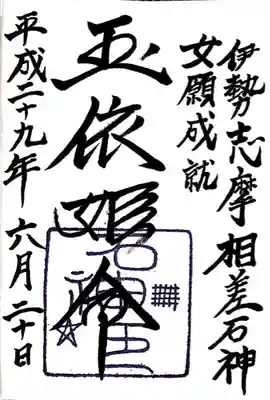 伊勢志摩相差石神
女願成就
玉依姫命
平成二十九年 六月二十日
石神之印